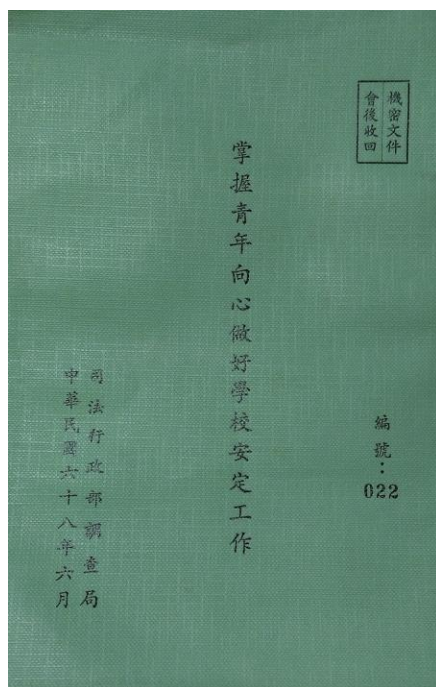 機密文件
會後收回
編號：022
掌握青年向心做好學校安定工作
司法行政部調查局
中華民國六十八年六月